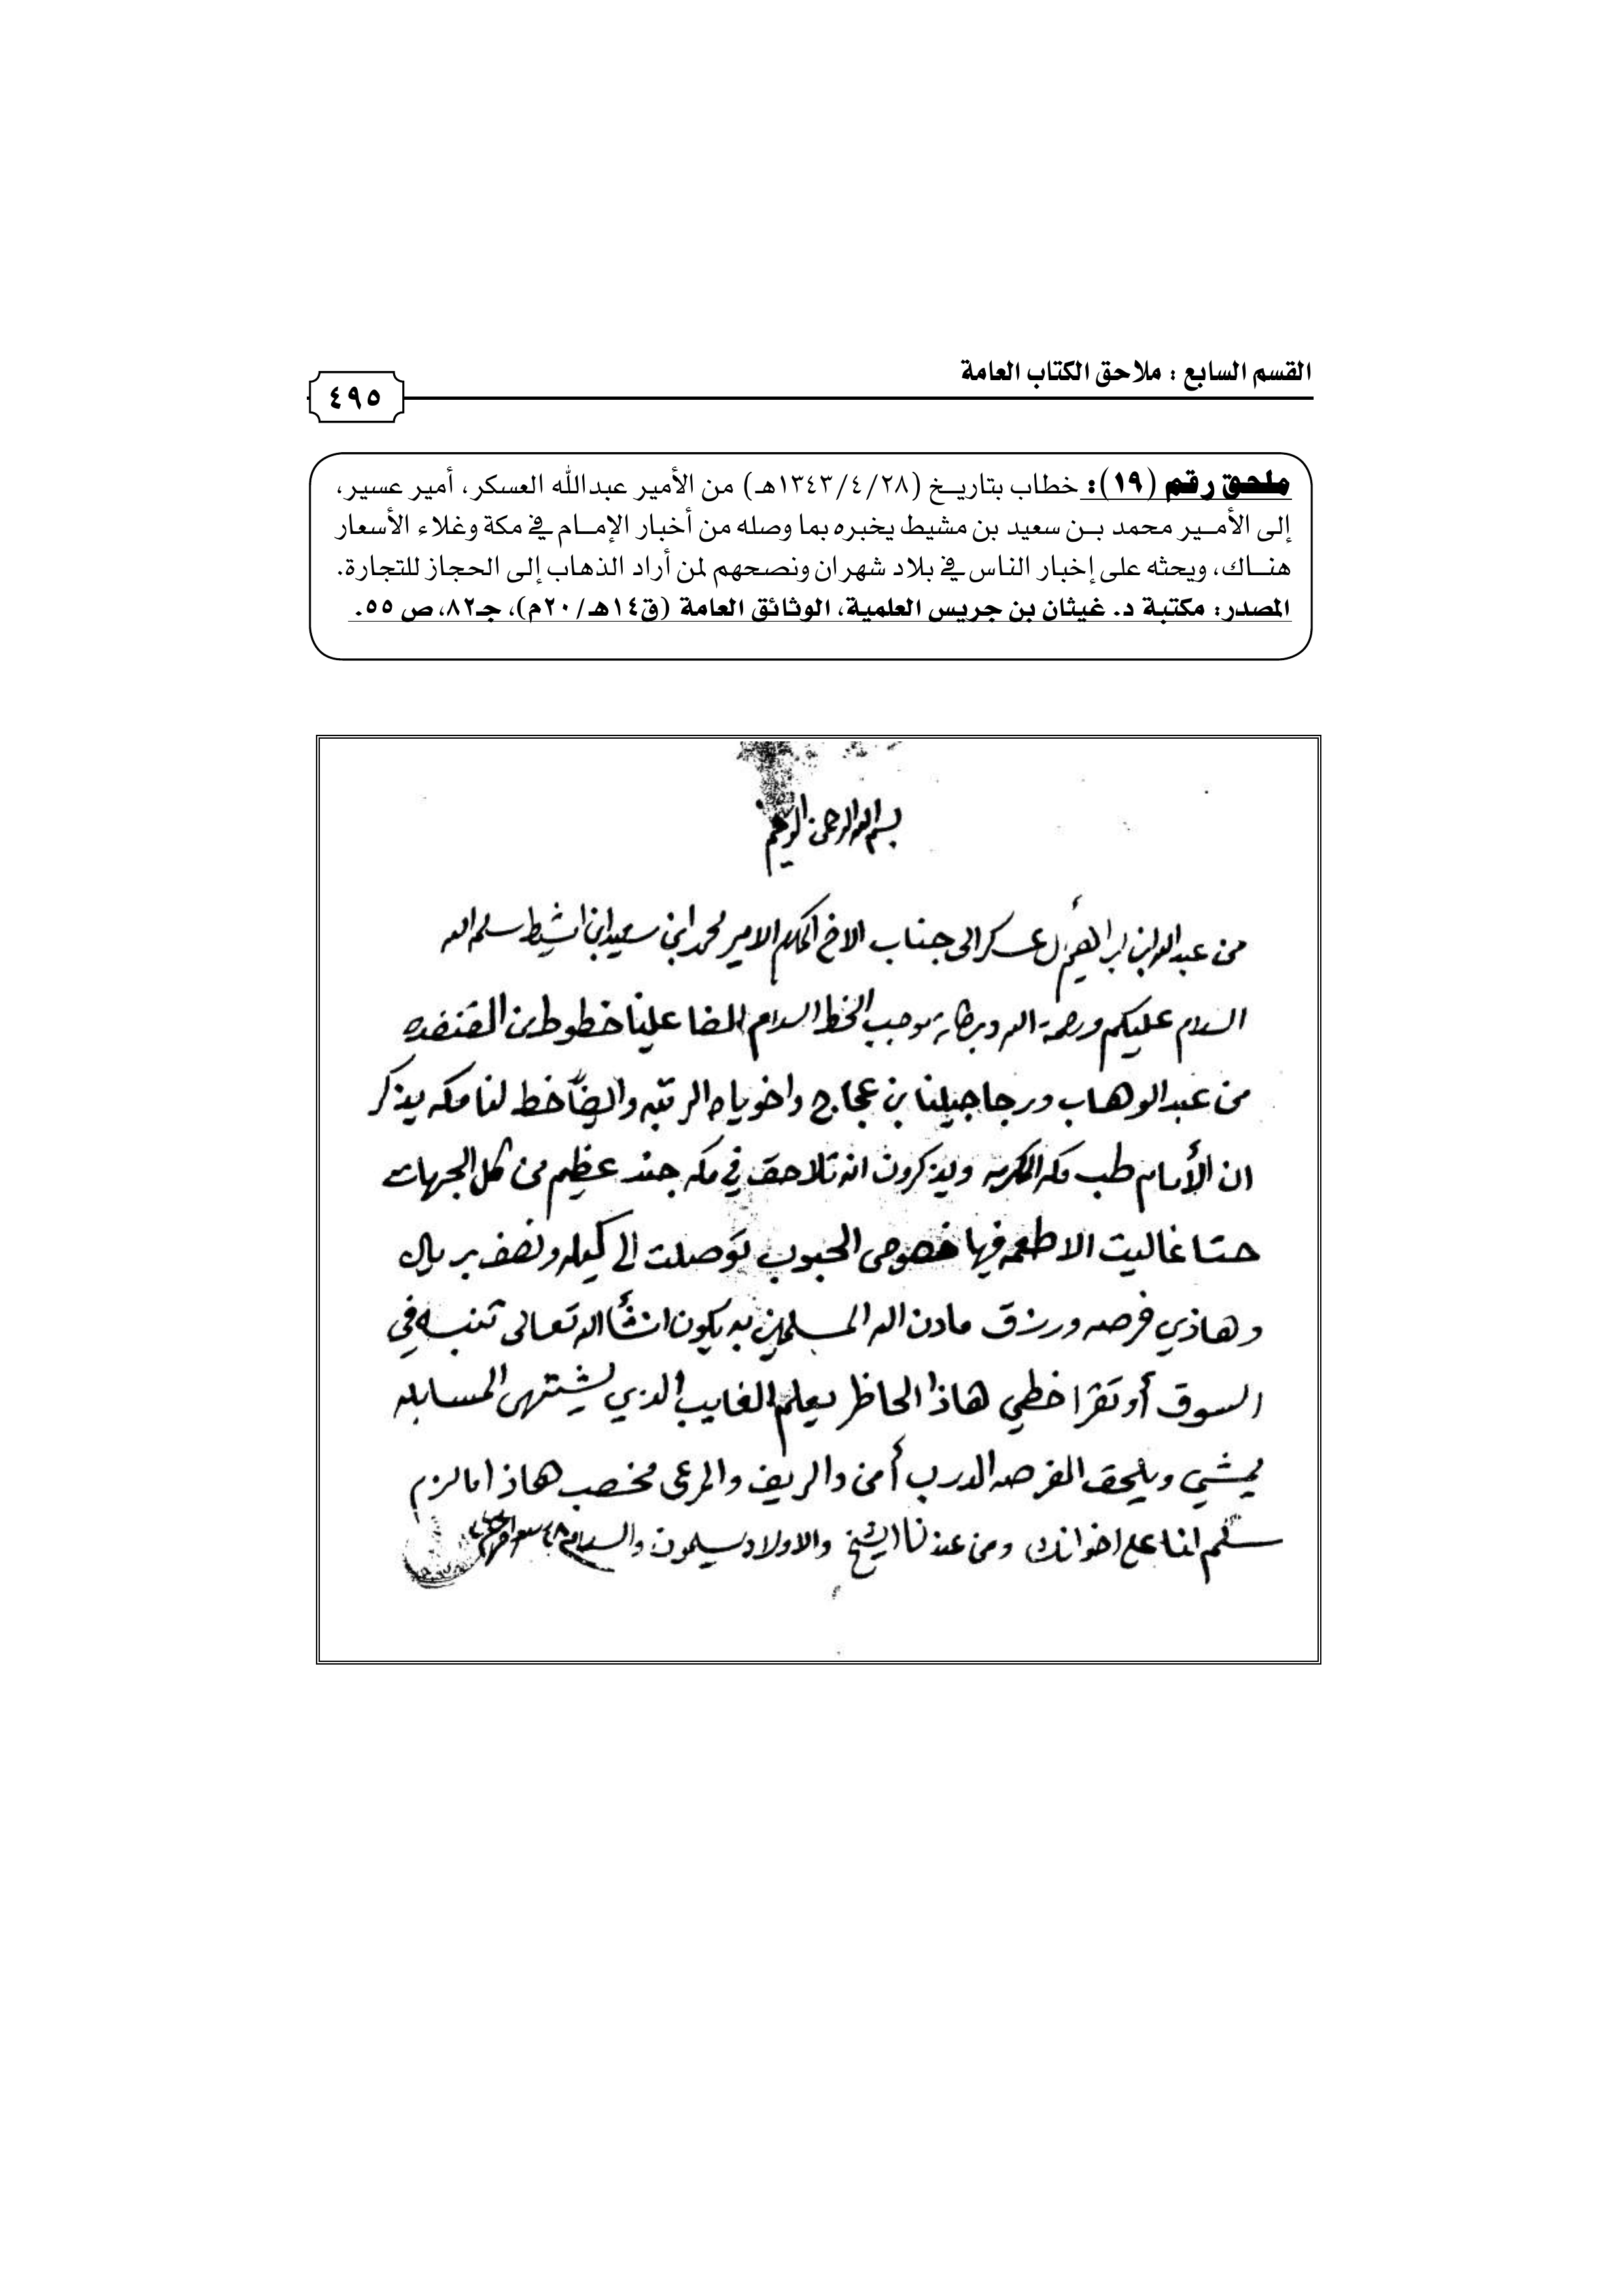 القسم السابع : ملاحق الكتاب العامة
٤٩٥
ملحق رقم (١٩): خطاب بتاريخ (١٣٤٣/٤/٢٨هـ) من الأمير عبدالله العسكر، أمير عسير،
إلى الأمير محمد بن سعيد بن مشيط يخبره بما وصله من أخبار الإمام في مكة وغلاء الأسعار
هناك، ويحثه على إخبار الناس في بلاد شهران ونصحهم لمن أراد الذهاب إلى الحجاز للتجارة.
المصدر: مكتبة د. غيثان بن جريس العلمية، الوثائق العامة (ق١٤هـ/٢٠م)، جـ٨٢، ص ٥٥.
بسم الله الرحمن الرحيم
من عبدالله ابن ابراهيم ال عسكر الى جناب الاخ المكرم الامير محمد ابن سعيد ابن مشيط سلمه الله
السلام عليكم ورحمة الله وبركاته موجب الخط السلام علينا خطوط من القنفده
من عبدالوهاب ورجاجيلنا بن عجاج واخوياه الرتبه وايضاً خط لنا مكه يذكر
ان الأمام طب مكه المكرمه ويذكرون انه تلاحق في مكه جند عظيم من كل الجهات
حتا غاليت الاطعمه فيها خصوص الحبوب توصلت الى كيله ونصف بريال
وهاذي فرصه ورزق مادن الله المسلمين به يكون انشأ الله تعالى تنبه في
السوق أو تقرا خطي هاذا الحاظر يعلم الغايب الذي يشتهي المسابله
يمشي ويلحق الفرصه الدرب أمن والريف والمرعى مخصب هاذا مالزم
سلم لنا على اخوانك ومن عندنا الشيخ والاولاد يسلمون والسلام